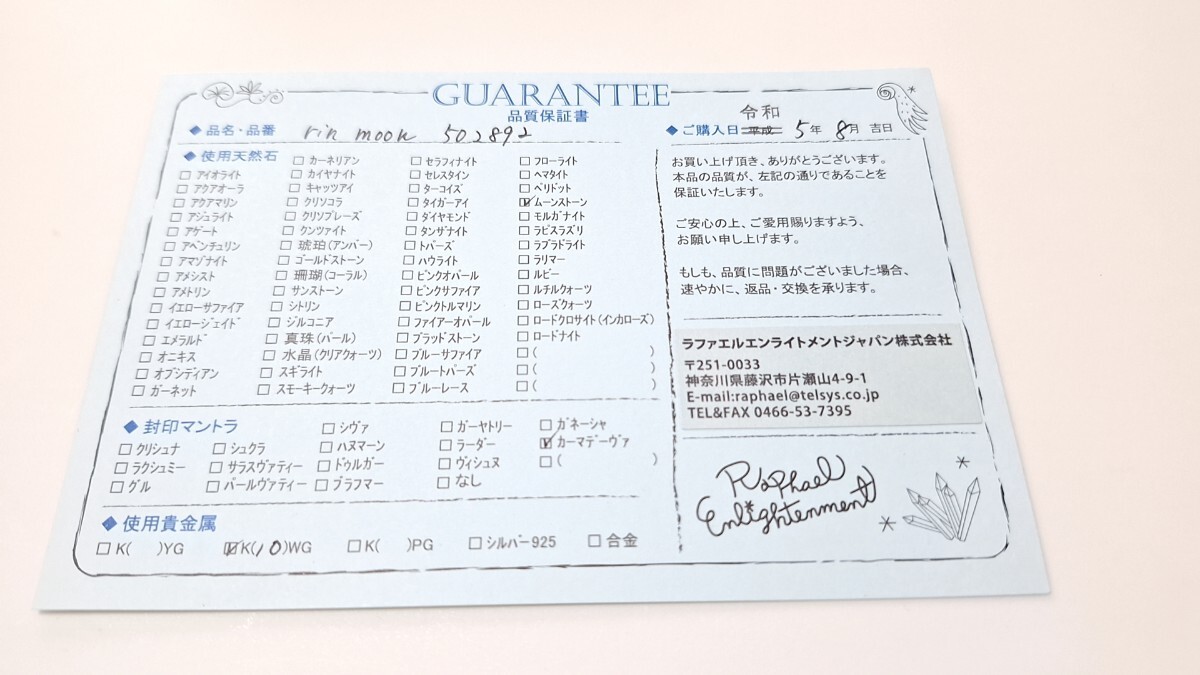 GUARANTEE
品質保証書
◆ 品名・品番 rin moon 502892
◆ 使用天然石
□ アイオライト
□ アクアオーラ
□ アクアマリン
□ アジュライト
□ アゲート
□ アベンチュリン
□ アマゾナイト
□ アメシスト
□ アメトリン
□ イエローサファイア
□ イエロージェイド
□ エメラルド
□ オニキス
□ オブシディアン
□ ガーネット
□ カーネリアン
□ カイヤナイト
□ キャッツアイ
□ クリソコラ
□ クリソプレーズ
□ クンツァイト
□ 琥珀(アンバー)
□ ゴールドストーン
□ 珊瑚(コーラル)
□ サンストーン
□ シトリン
□ ジルコニア
□ 真珠(パール)
□ 水晶(クリアクォーツ)
□ スギライト
□ スモーキークォーツ
□ セラフィナイト
□ セレスタイン
□ ターコイズ
□ タイガーアイ
□ ダイヤモンド
□ タンザナイト
□ トパーズ
□ ハウライト
□ ピンクオパール
□ ピンクサファイア
□ ピンクトルマリン
□ ファイアーオパール
□ ブラッドストーン
□ ブルーサファイア
□ ブルートパーズ
□ ブルーレース
□ フローライト
□ ヘマタイト
□ ペリドット
☑ ムーンストーン
□ モルガナイト
□ ラピスラズリ
□ ラブラドライト
□ ラリマー
□ ルビー
□ ルチルクォーツ
□ ローズクォーツ
□ ロードクロサイト(インカローズ)
□ ロードナイト
□ ( )
□ ( )
□ ( )
◆ 封印マントラ
□ クリシュナ
□ ラクシュミー
□ グル
□ シュクラ
□ サラスヴァティー
□ パールヴァティー
□ シヴァ
□ ハヌマーン
□ ドゥルガー
□ ブラフマー
□ ガーヤトリー
□ ラーダー
□ ヴィシュヌ
□ なし
□ ガネーシャ
☑ カーマデーヴァ
□ ( )
◆ 使用貴金属
□ K( )YG ☑ K(10)WG □ K( )PG □ シルバー925 □ 合金
令和
◆ ご購入日 平成 5年 8月 吉日
お買い上げ頂き、ありがとうございます。
本品の品質が、左記の通りであることを
保証いたします。
ご安心の上、ご愛用賜りますよう、
お願い申し上げます。
もしも、品質に問題がございました場合、
速やかに、返品・交換を承ります。
ラファエルエンライトメントジャパン株式会社
〒251-0033
神奈川県藤沢市片瀬山4-9-1
E-mail:raphael@telsys.co.jp
TEL&FAX 0466-53-7395
Raphael
Enlightenment